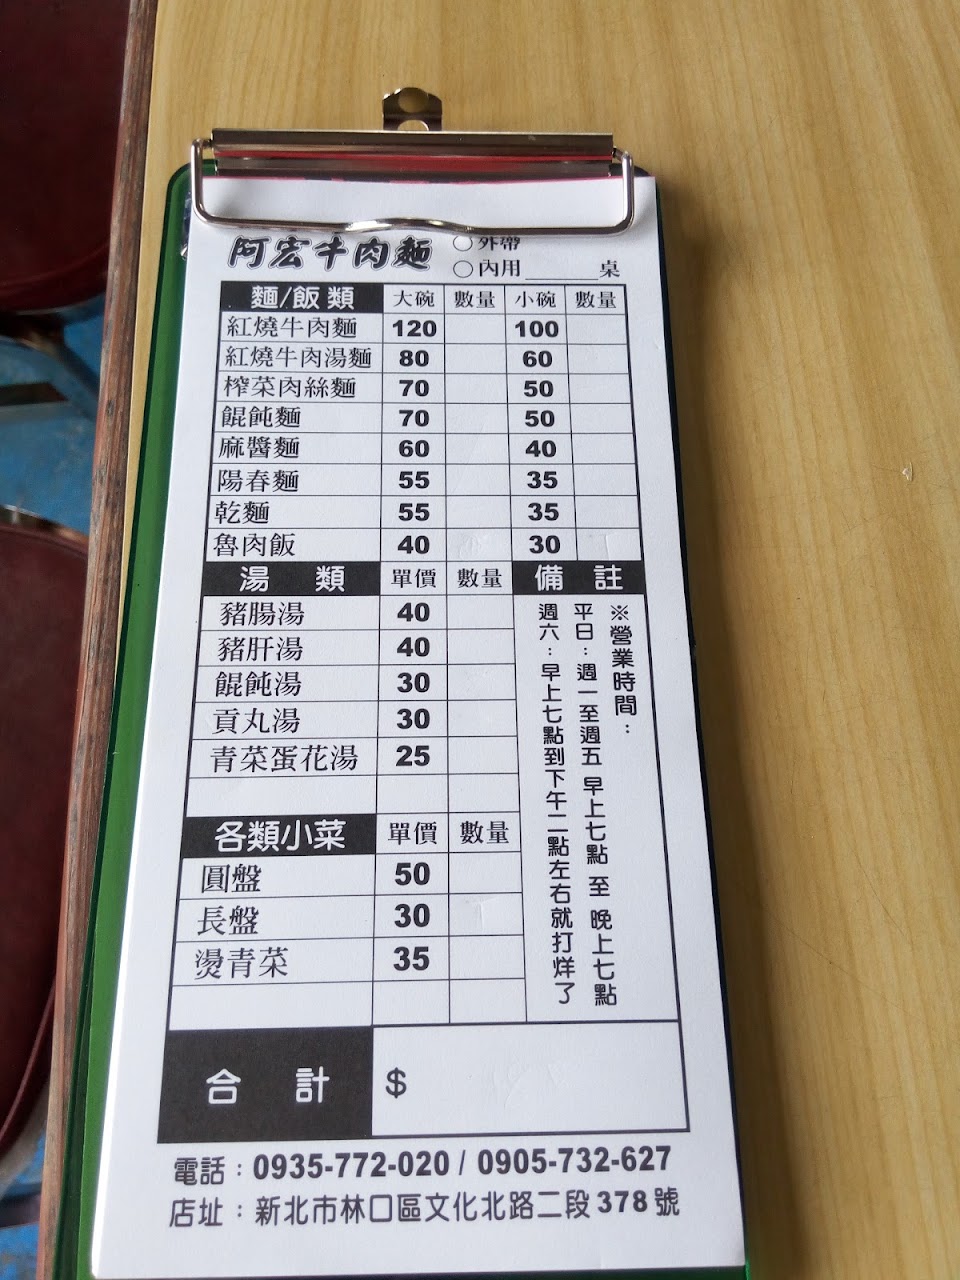 阿宏牛肉麵
○外帶
○內用______桌
麵/飯 類 大碗 數量 小碗 數量
紅燒牛肉麵 120 100
紅燒牛肉湯麵 80 60
榨菜肉絲麵 70 50
餛飩麵 70 50
麻醬麵 60 40
陽春麵 55 35
乾麵 55 35
魯肉飯 40 30
湯 類 單價 數量 備 註
豬腸湯 40
豬肝湯 40
餛飩湯 30
貢丸湯 30
青菜蛋花湯 25
※營業時間：
平日：週一至週五 早上七點 至 晚上七點
週六：早上七點到下午二點左右就打烊了
各類小菜 單價 數量
圓盤 50
長盤 30
燙青菜 35
合 計 $
電話：0935-772-020 / 0905-732-627
店址：新北市林口區文化北路二段378號